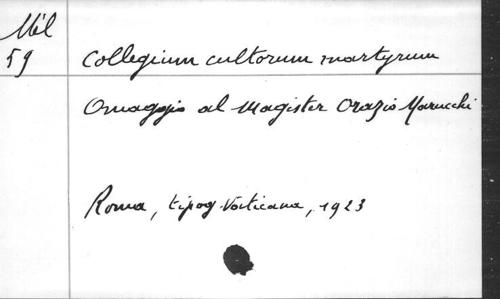 Mél
59
Collegium cultorum martyrum
Omaggio al Magister Orazio Marucchi
Roma, tipog. Vaticana, 1923